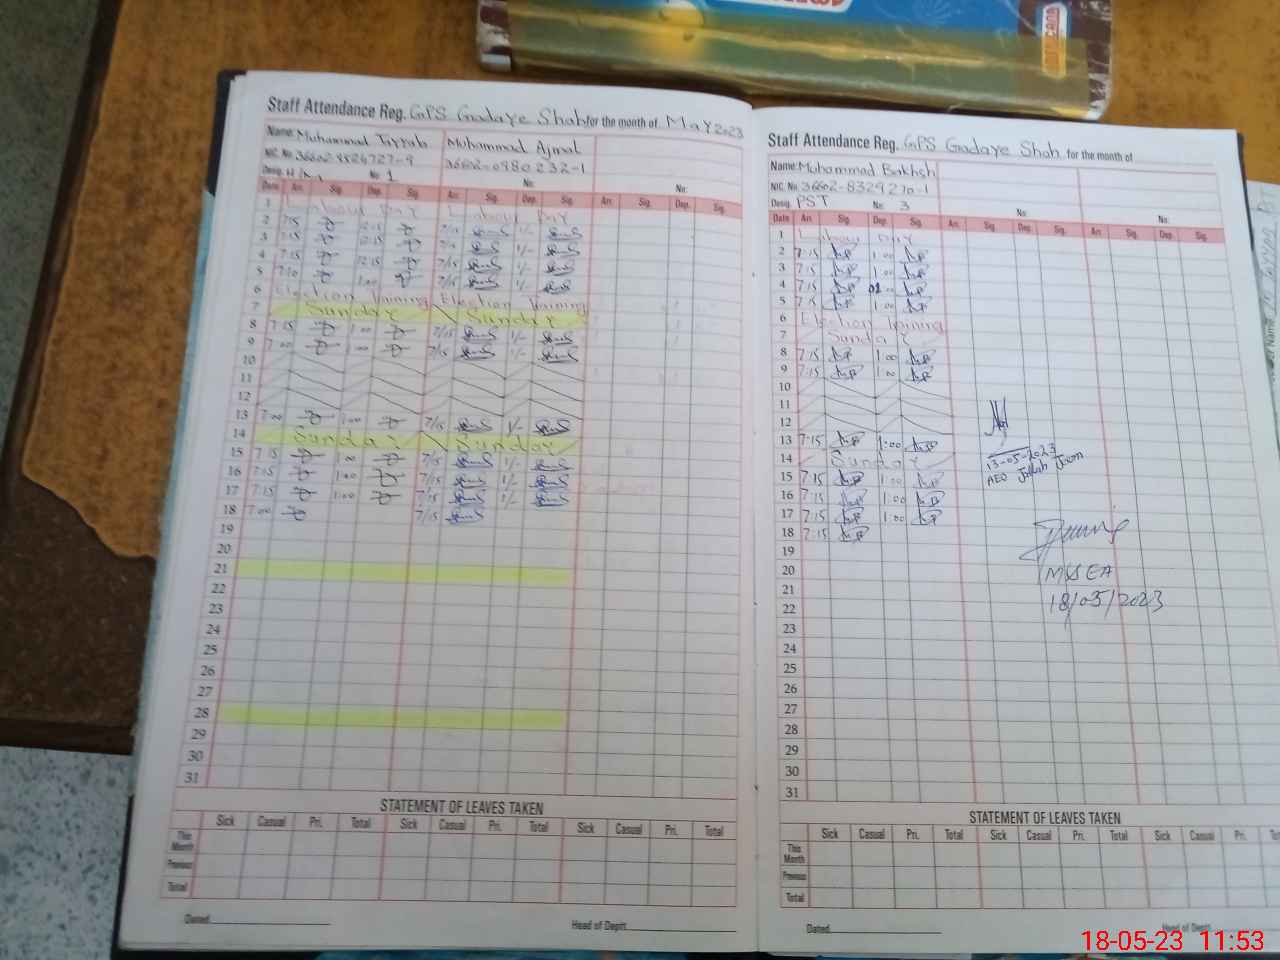 Staff Attendance Reg. GPS Gadaye Shah for the month of May 2023
Name: Muhammad Tayyab Muhammad Ajmal
NIC. No. 36602-0980232-1
Desig. No: 1 No:
Date Arr. Sig. Dep. Sig. Arr. Sig. Dep. Sig. Arr. Sig. Dep. Sig.
1 Labour Day Labour Day
2 7:15 12:15 7/15 1/-
3 7:15 12:15 7/15 1/-
4 7:15 12:15 7/15 1/-
5 7:10 1:00 7/15 1/-
6 Election Training Election Training
7 Sunday Sunday
8 7:15 1:00 7/15 1/-
9 7:00 1:00 7/15 1/-
10
11
12
13 7:00 1:00 7/15 1/-
14 Sunday Sunday
15 7:15 1:00 7/15 1/-
16 7:15 1:00 7/15 1/-
17 7:15 1:00 7/15 1/-
18 7:00 7/15
19
20
21
22
23
24
25
26
27
28
29
30
31
STATEMENT OF LEAVES TAKEN
Sick Casual Pri. Total Sick Casual Pri. Total Sick Casual Pri. Total
This Month
Previous
Total
Dated Head of Deptt.
Staff Attendance Reg. GPS Gadaye Shah for the month of
Name: Muhammad Bakhsh
NIC. No. 36602-8329210-1
Desig. PST No: 3 No: No:
Date Arr. Sig. Dep. Sig. Arr. Sig. Dep. Sig. Arr. Sig. Dep. Sig.
1 Labour Day
2 7:15 1:00
3 7:15 1:00
4 7:15 01:00
5 7:15 1:00
6 Election Training
7 Sunday
8 7:15 1:00
9 7:15 1:00
10
11
12
13 7:15 1:00
14 Sunday
15 7:15 1:00
16 7:15 1:00
17 7:15 1:00
18 7:15
19
20
21
22
23
24
25
26
27
28
29
30
31
13-05-2023
AEO Jallah Jeem
MSSEA
18/05/2023
STATEMENT OF LEAVES TAKEN
Sick Casual Pri. Total Sick Casual Pri. Total Sick Casual Pri.
This Month
Previous
Total
Dated Head of Deptt.
18-05-23 11:53